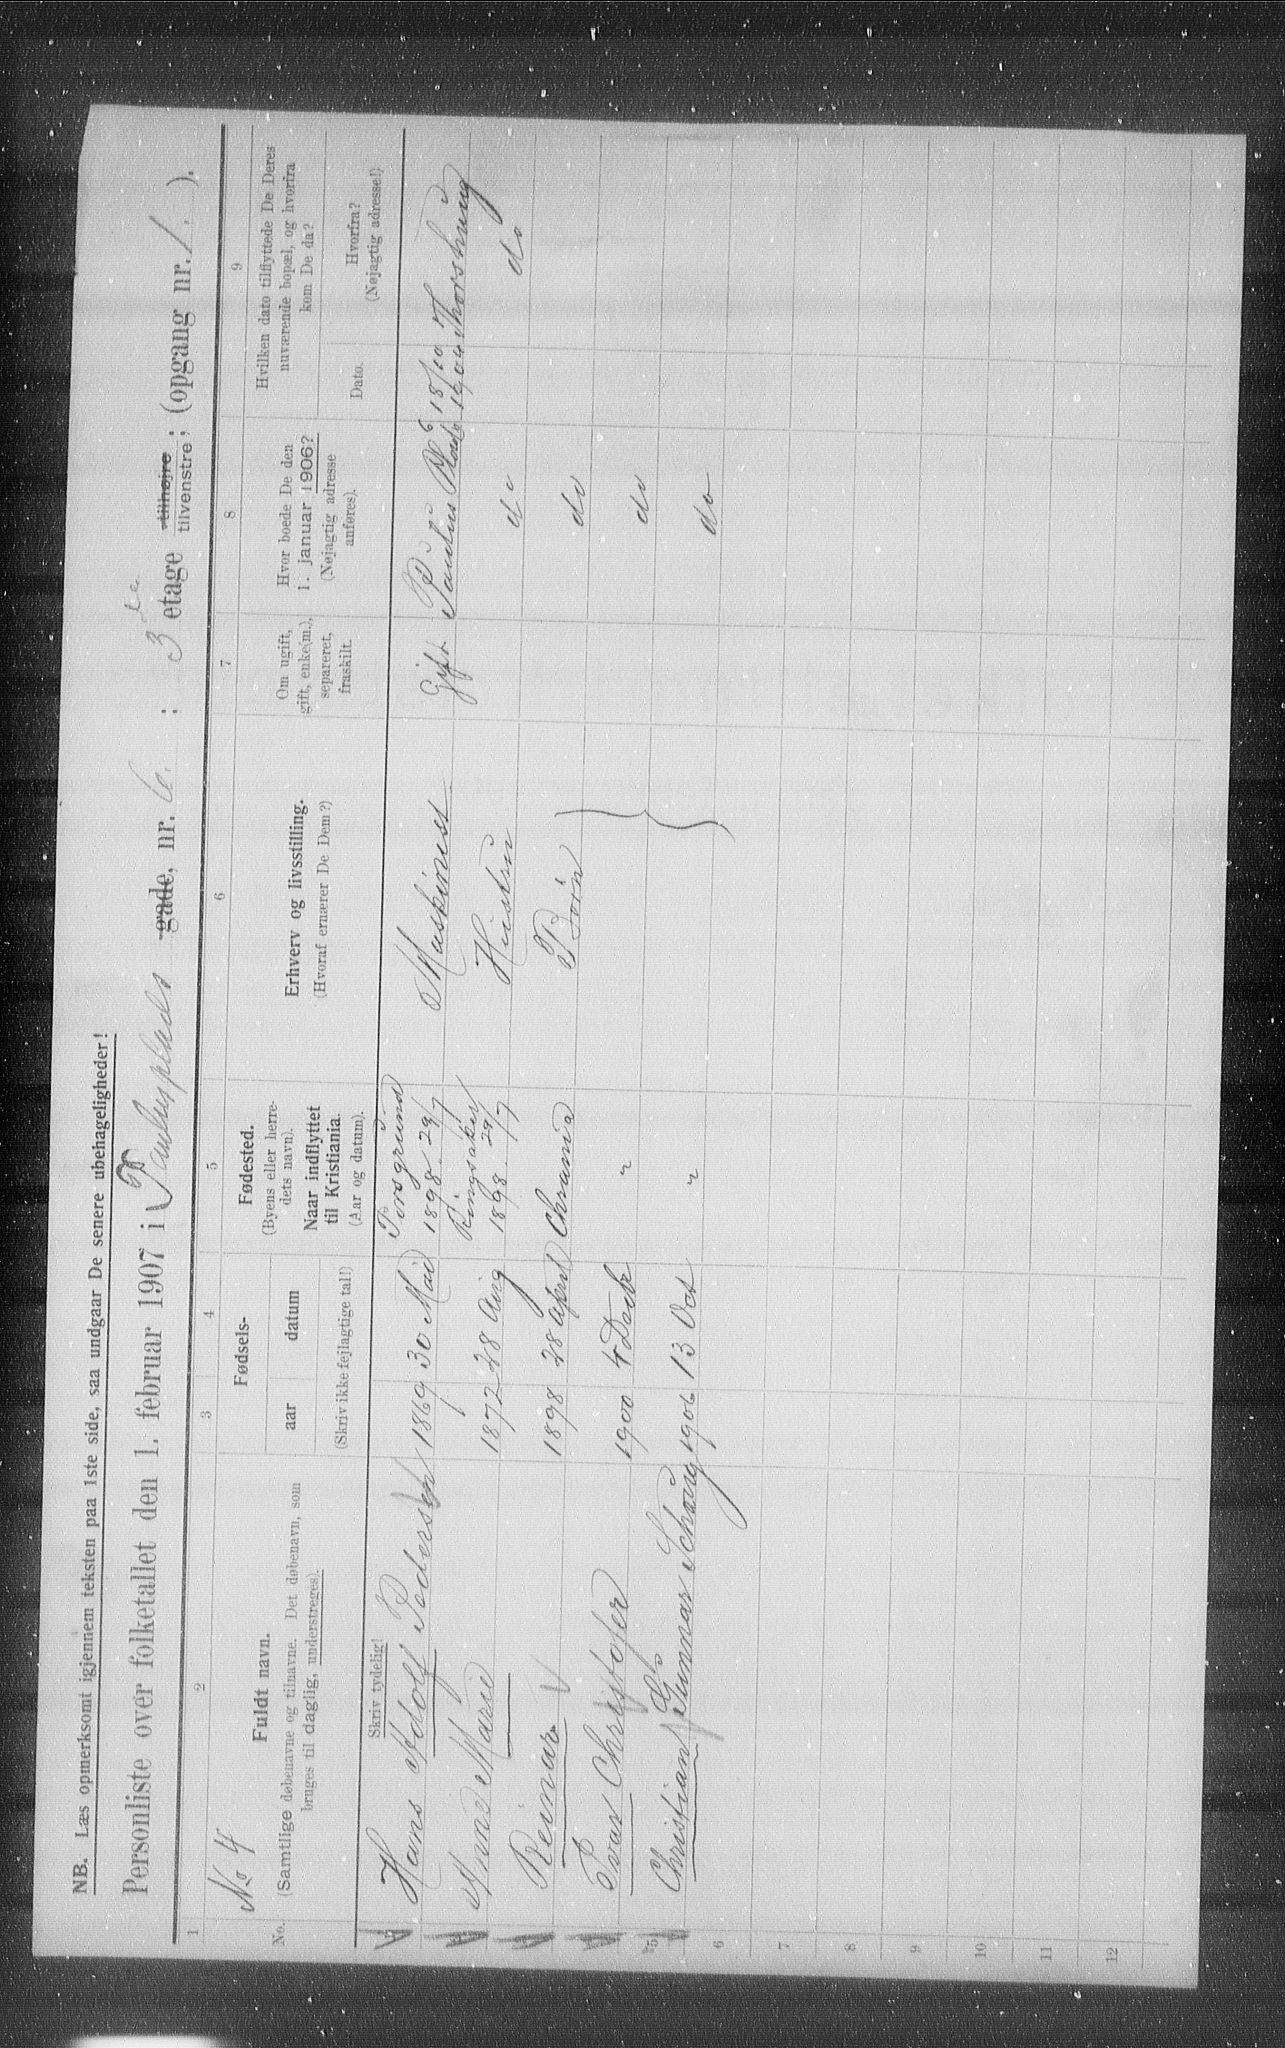 NB. Læs opmerksomt igjennem teksten paa 1ste side, saa undgaar De senere ubehageligheder!
Personliste over folketallet den 1. februar 1907 i Paulusplads gade, nr. 6. ; 3 de etage tilhøjre tilvenstre; (opgang nr. 1. ).
No 4
1 2 3 4 5 6 7 8 9
No.
Fuldt navn.
(Samtlige døbenavne og tilnavne. Det døbenavn, som
bruges til daglig, understreges).
Skriv tydelig!
Fødsels-
aar datum
(Skriv ikke fejlagtige tal!)
Fødested.
(Byens eller herre-
dets navn).
Naar indflyttet
til Kristiania.
(Aar og datum).
Erhverv og livsstilling.
(Hvoraf ernærer De Dem?)
Om ugift,
gift, enke(m.),
separeret,
fraskilt.
Hvor boede De den
1. januar 1906?
(Nøjagtig adresse
anføres).
Hvilken dato tilflyttede De Deres
nuværende bopæl, og hvorfra
kom De da?
Dato.
Hvorfra?
(Nøjagtig adresse!)
Hans Adolf Pedersen 1869 30 Mai Porsgrund 1898 29/7 Maskinist Gift Paulus Plads 6 18/10 1904 Thorshaug
Anna Marie 1872 28 Aug Ringsaker 1898. 29/7 Hustru do do
Reinar 1898 28 April Chrania Børn do
Ivar Christofer 1900 4 Decbr " do
5 Christian Gunnar Schaug 1906 13 Oct " do
6
7
8
9
10
11
12